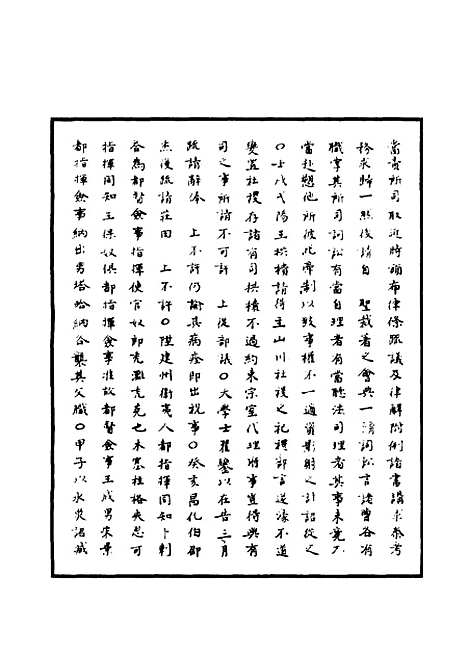 當責所司取近時頒布律條疏議及律解附例諸書講求參考
務求歸一然後請自　聖裁著之會典一請詞訟言諸曹各有
職掌其所司詞訟有當自理者有當聽法司理者其事未竟不
當赴愬他所彼此牽制以致事權不一適資影射之計詔從之
○壬戌弋陽王拱樻請得主山川社稷之祀禮部言逆濠不道
變置社稷存諸有司拱樻不過約束宗室代理府事宜待與有
司之事所請不可許　上從部議○大學士翟鑾以在告三月
疏請解休　上不許仍諭其病痊即出視事○癸亥昌化伯邵
杰復疏請莊田　上不許○陞建州衛夷人都指揮同知卜剌
答為都督僉事指揮使官奴郎克灩克也木忽桂格夾忽可
指揮同知王保奴俱都指揮僉事准故都督僉事王成男宋景
都指揮僉事納出男塔哈納合襲其父職○甲子以水災詔減